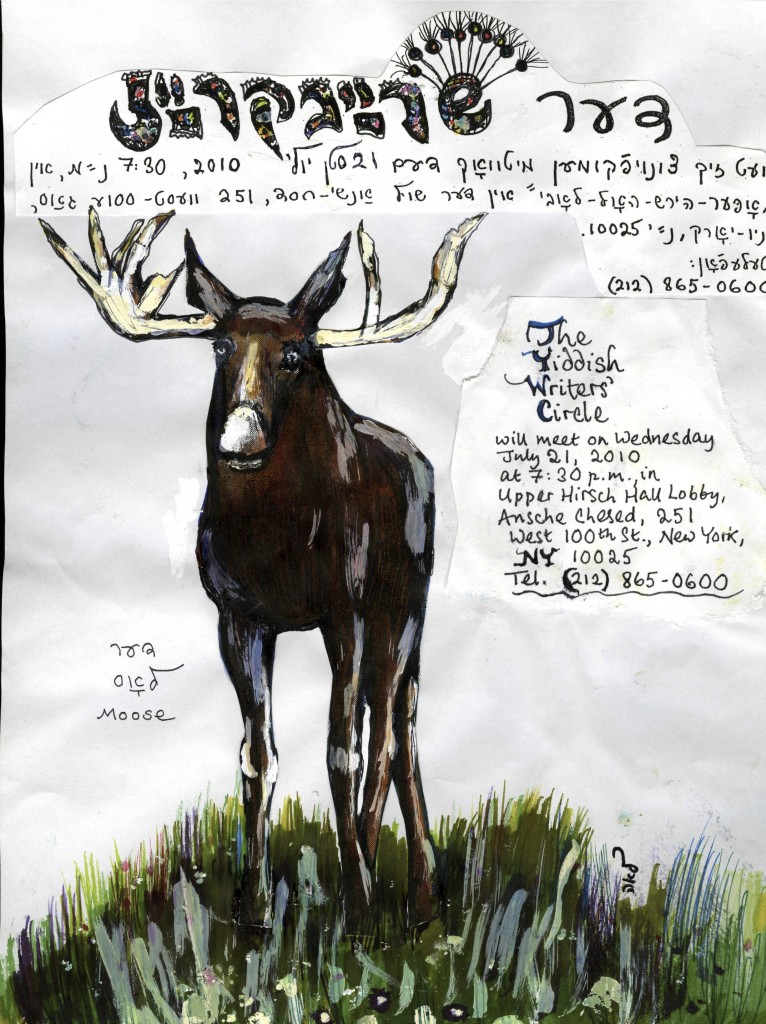 דער שרײַבקרײַז
וועט זיך צונויפֿקומען מיטוואָך דעם 21סטן יולי 2010, 7:30 נ״מ, אין
אָפּער-הירש-האָל-לאָבי״ אין דער שול אַנשי-חסד, 251 וועסט-100טע גאַס,
ניו-יאָרק, נ״י 10025.
טעלעפֿאָן:
(212) 865-0600
The
Yiddish
Writers'
Circle
will meet on Wednesday
July 21, 2010
at 7:30 p.m., in
Upper Hirsch Hall Lobby,
Ansche Chesed, 251
West 100th St., New York,
NY 10025
Tel. (212) 865-0600
דער
לאָס
Moose